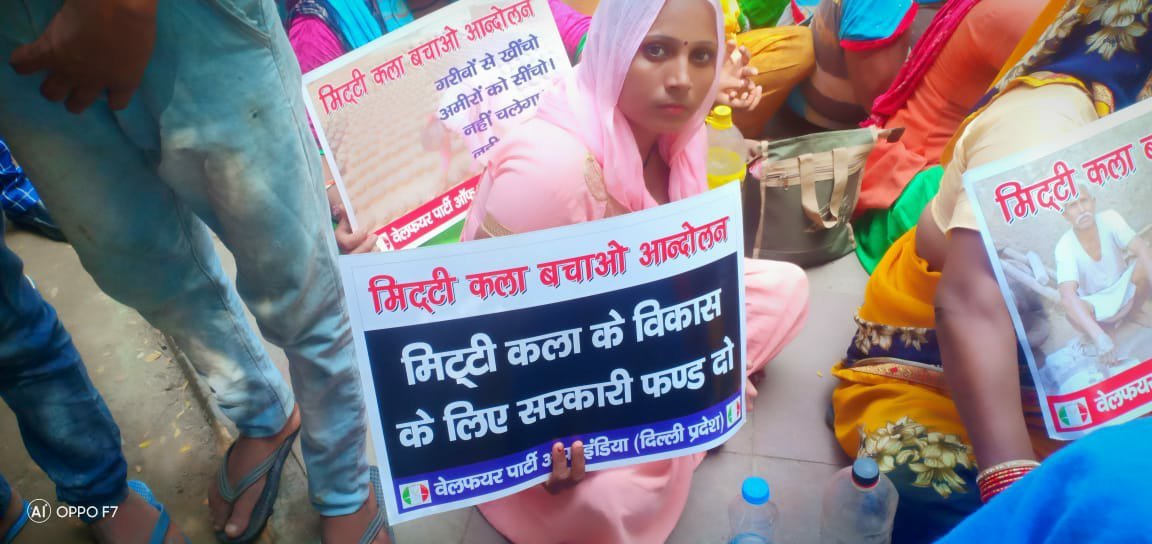 मिट्टी कला बचाओ आन्दोलन
गरीबों से खींचो
अमीरों को सींचो।
नहीं चलेगा
वेलफयर पार्टी ऑफ
मिट्टी कला बचाओ आन्दोलन
मिट्टी कला के विकास
के लिए सरकारी फण्ड दो
वेलफयर पार्टी इंडिया (दिल्ली प्रदेश)
मिट्टी कला
वेलफयर
AI OPPO F7